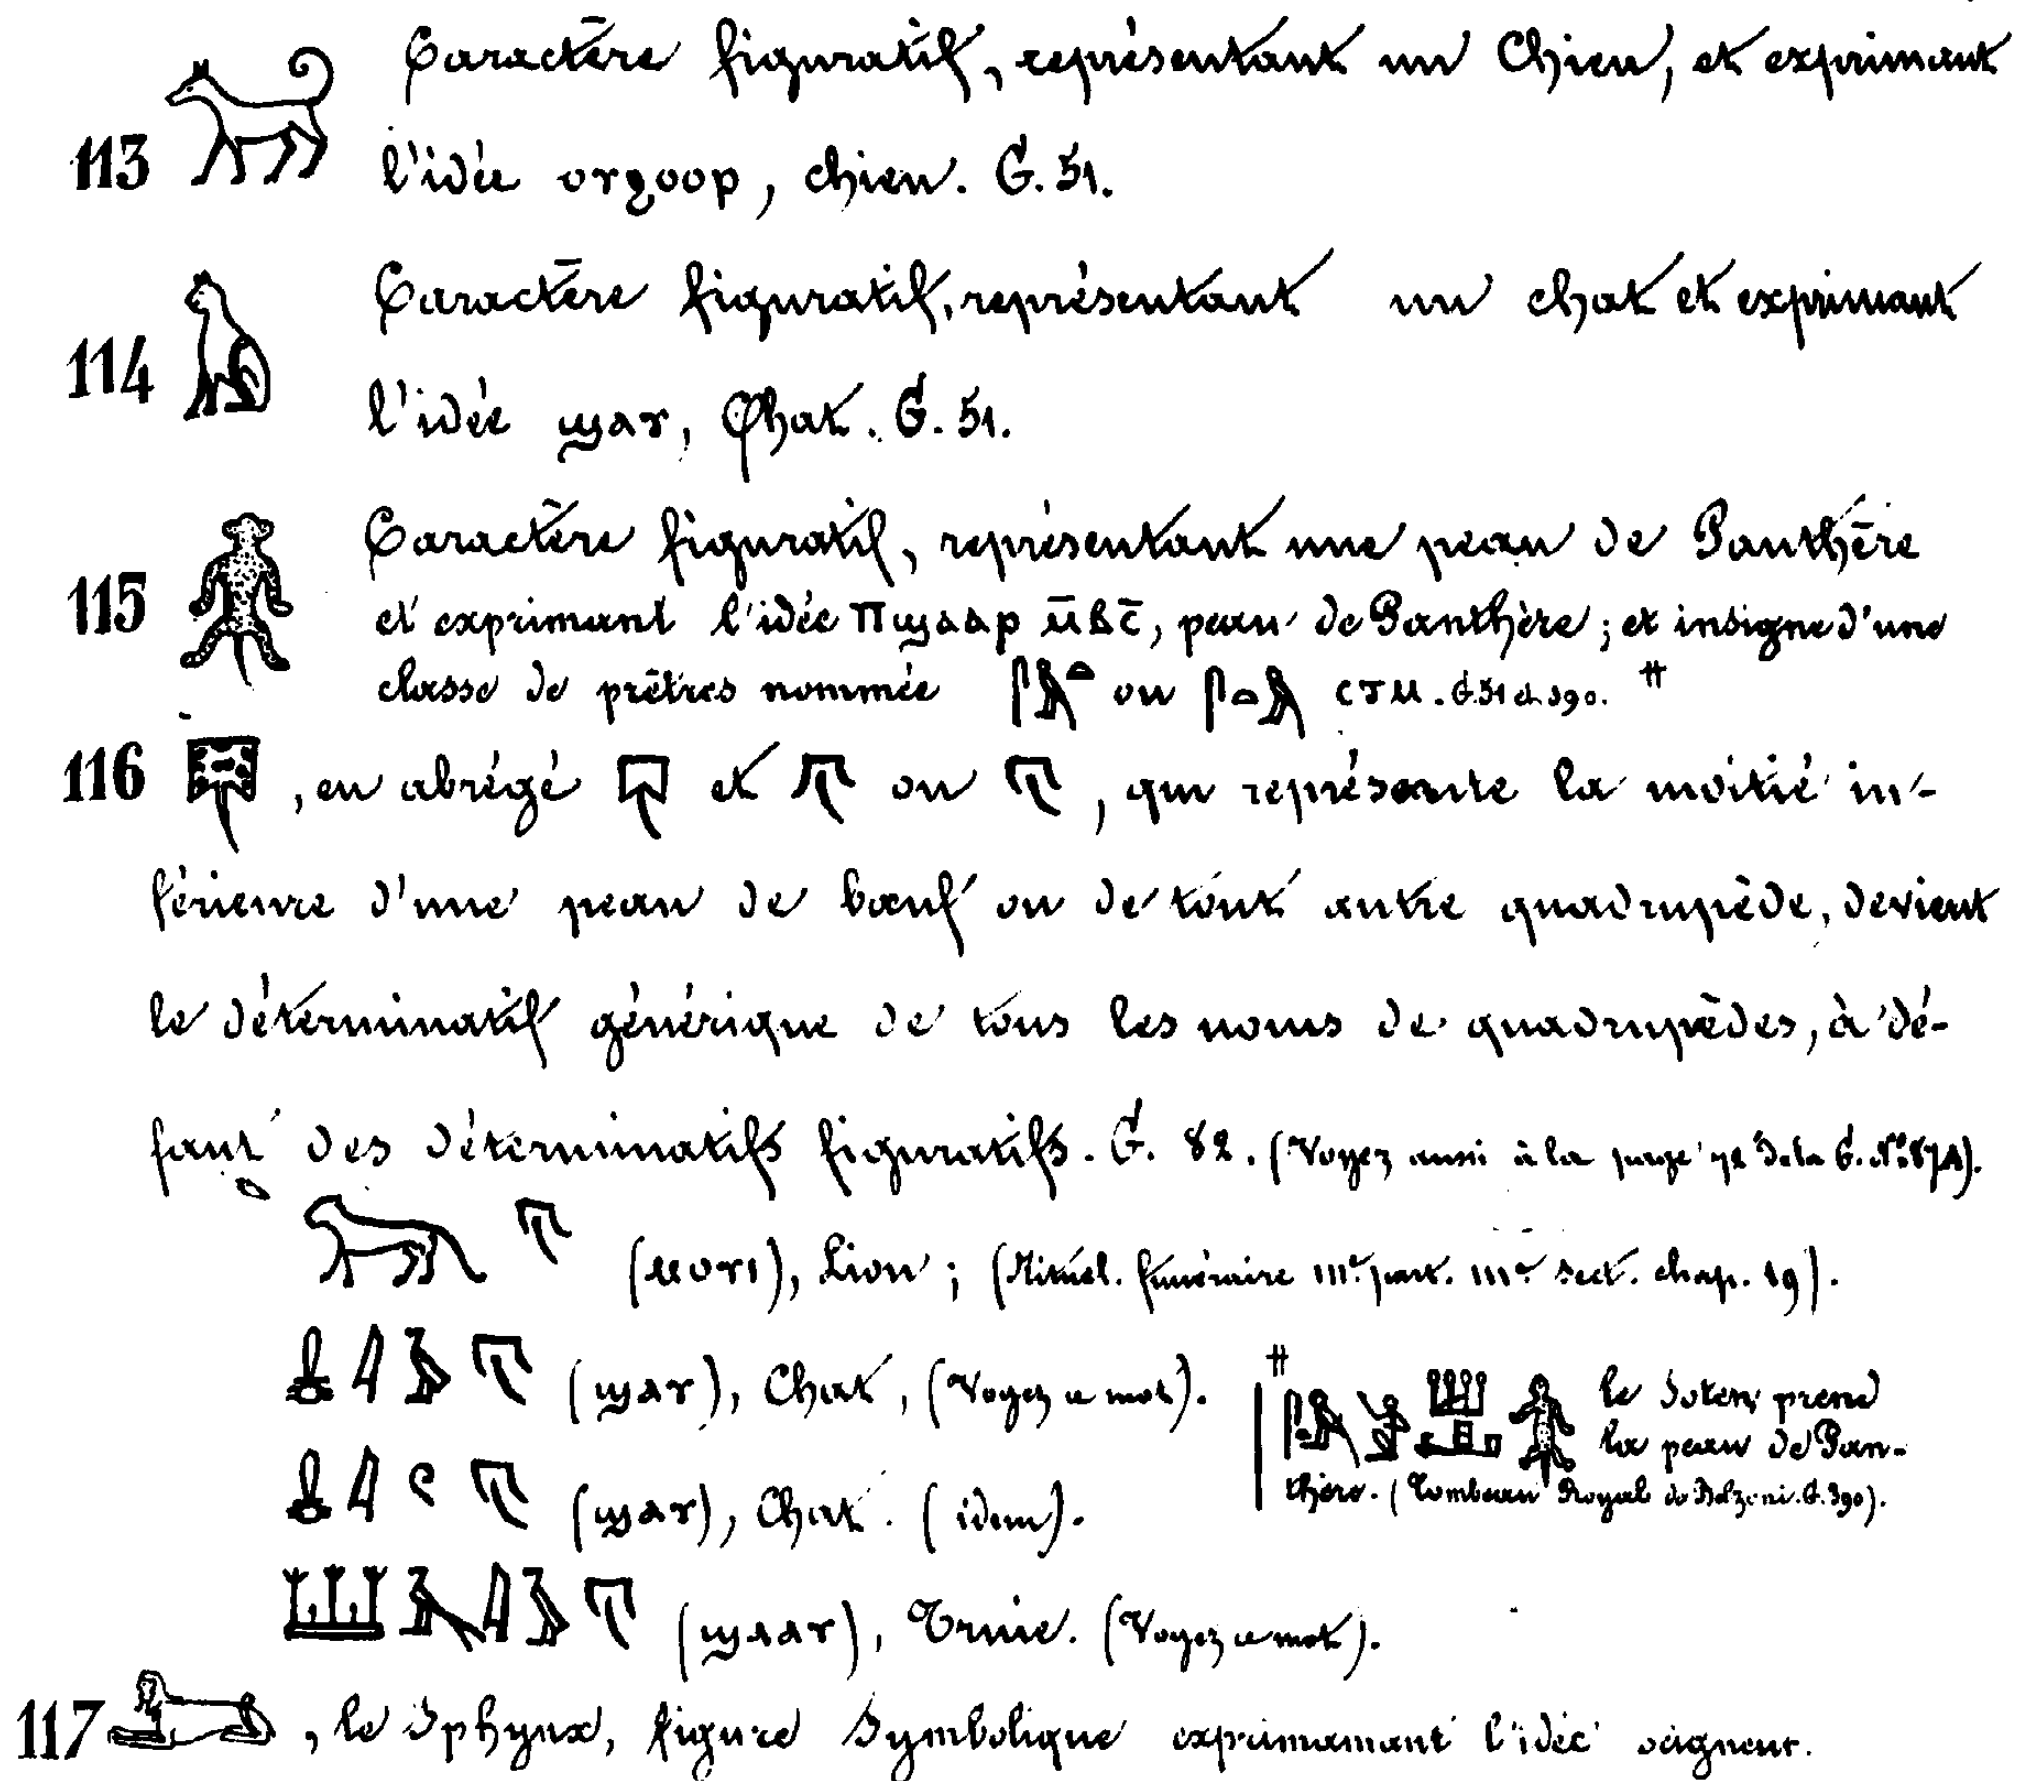 Caractère figuratif, représentant un Chien, et exprimant
113 l'idée ⲟⲩϩⲟⲟⲣ, chien. G. 51.
Caractère figuratif, représentant un chat et exprimant
114 l'idée ϣⲁⲩ, Chat. G. 51.
Caractère figuratif, représentant une peau de Panthère
115 et exprimant l'idée ⲡϣⲁⲁⲣ ⲙ̄ⲃⲥ̄, peau de Panthère; et insigne d'une
classe de prêtres nommée ou ⲥⲧⲙ. G. 51 et 390. #
116 , en abrégé et ou , qui représente la moitié in-
férieure d'une peau de bœuf ou de tout autre quadrupède, devient
le déterminatif générique de tous les noms de quadrupèdes, à dé-
faut des déterminatifs figuratifs. G. 82. (Voyez aussi à la page 72 de la G. N° 87A).
(ⲙⲟⲩⲓ), Lion; (Rituel funéraire IIIe part. IIIe sect. chap. 19).
(ϣⲁⲩ), Chat, (Voyez ce mot).
(ϣⲁⲩ), Chat. (idem).
(ϣⲁⲁⲩ), Truie. (Voyez ce mot).
# le Soten prend
la peau de Pan-
thère. (Tombeau Royal de Belzoni. G. 390).
117 , le Sphynx, figure Symbolique exprimamant l'idée seigneur.